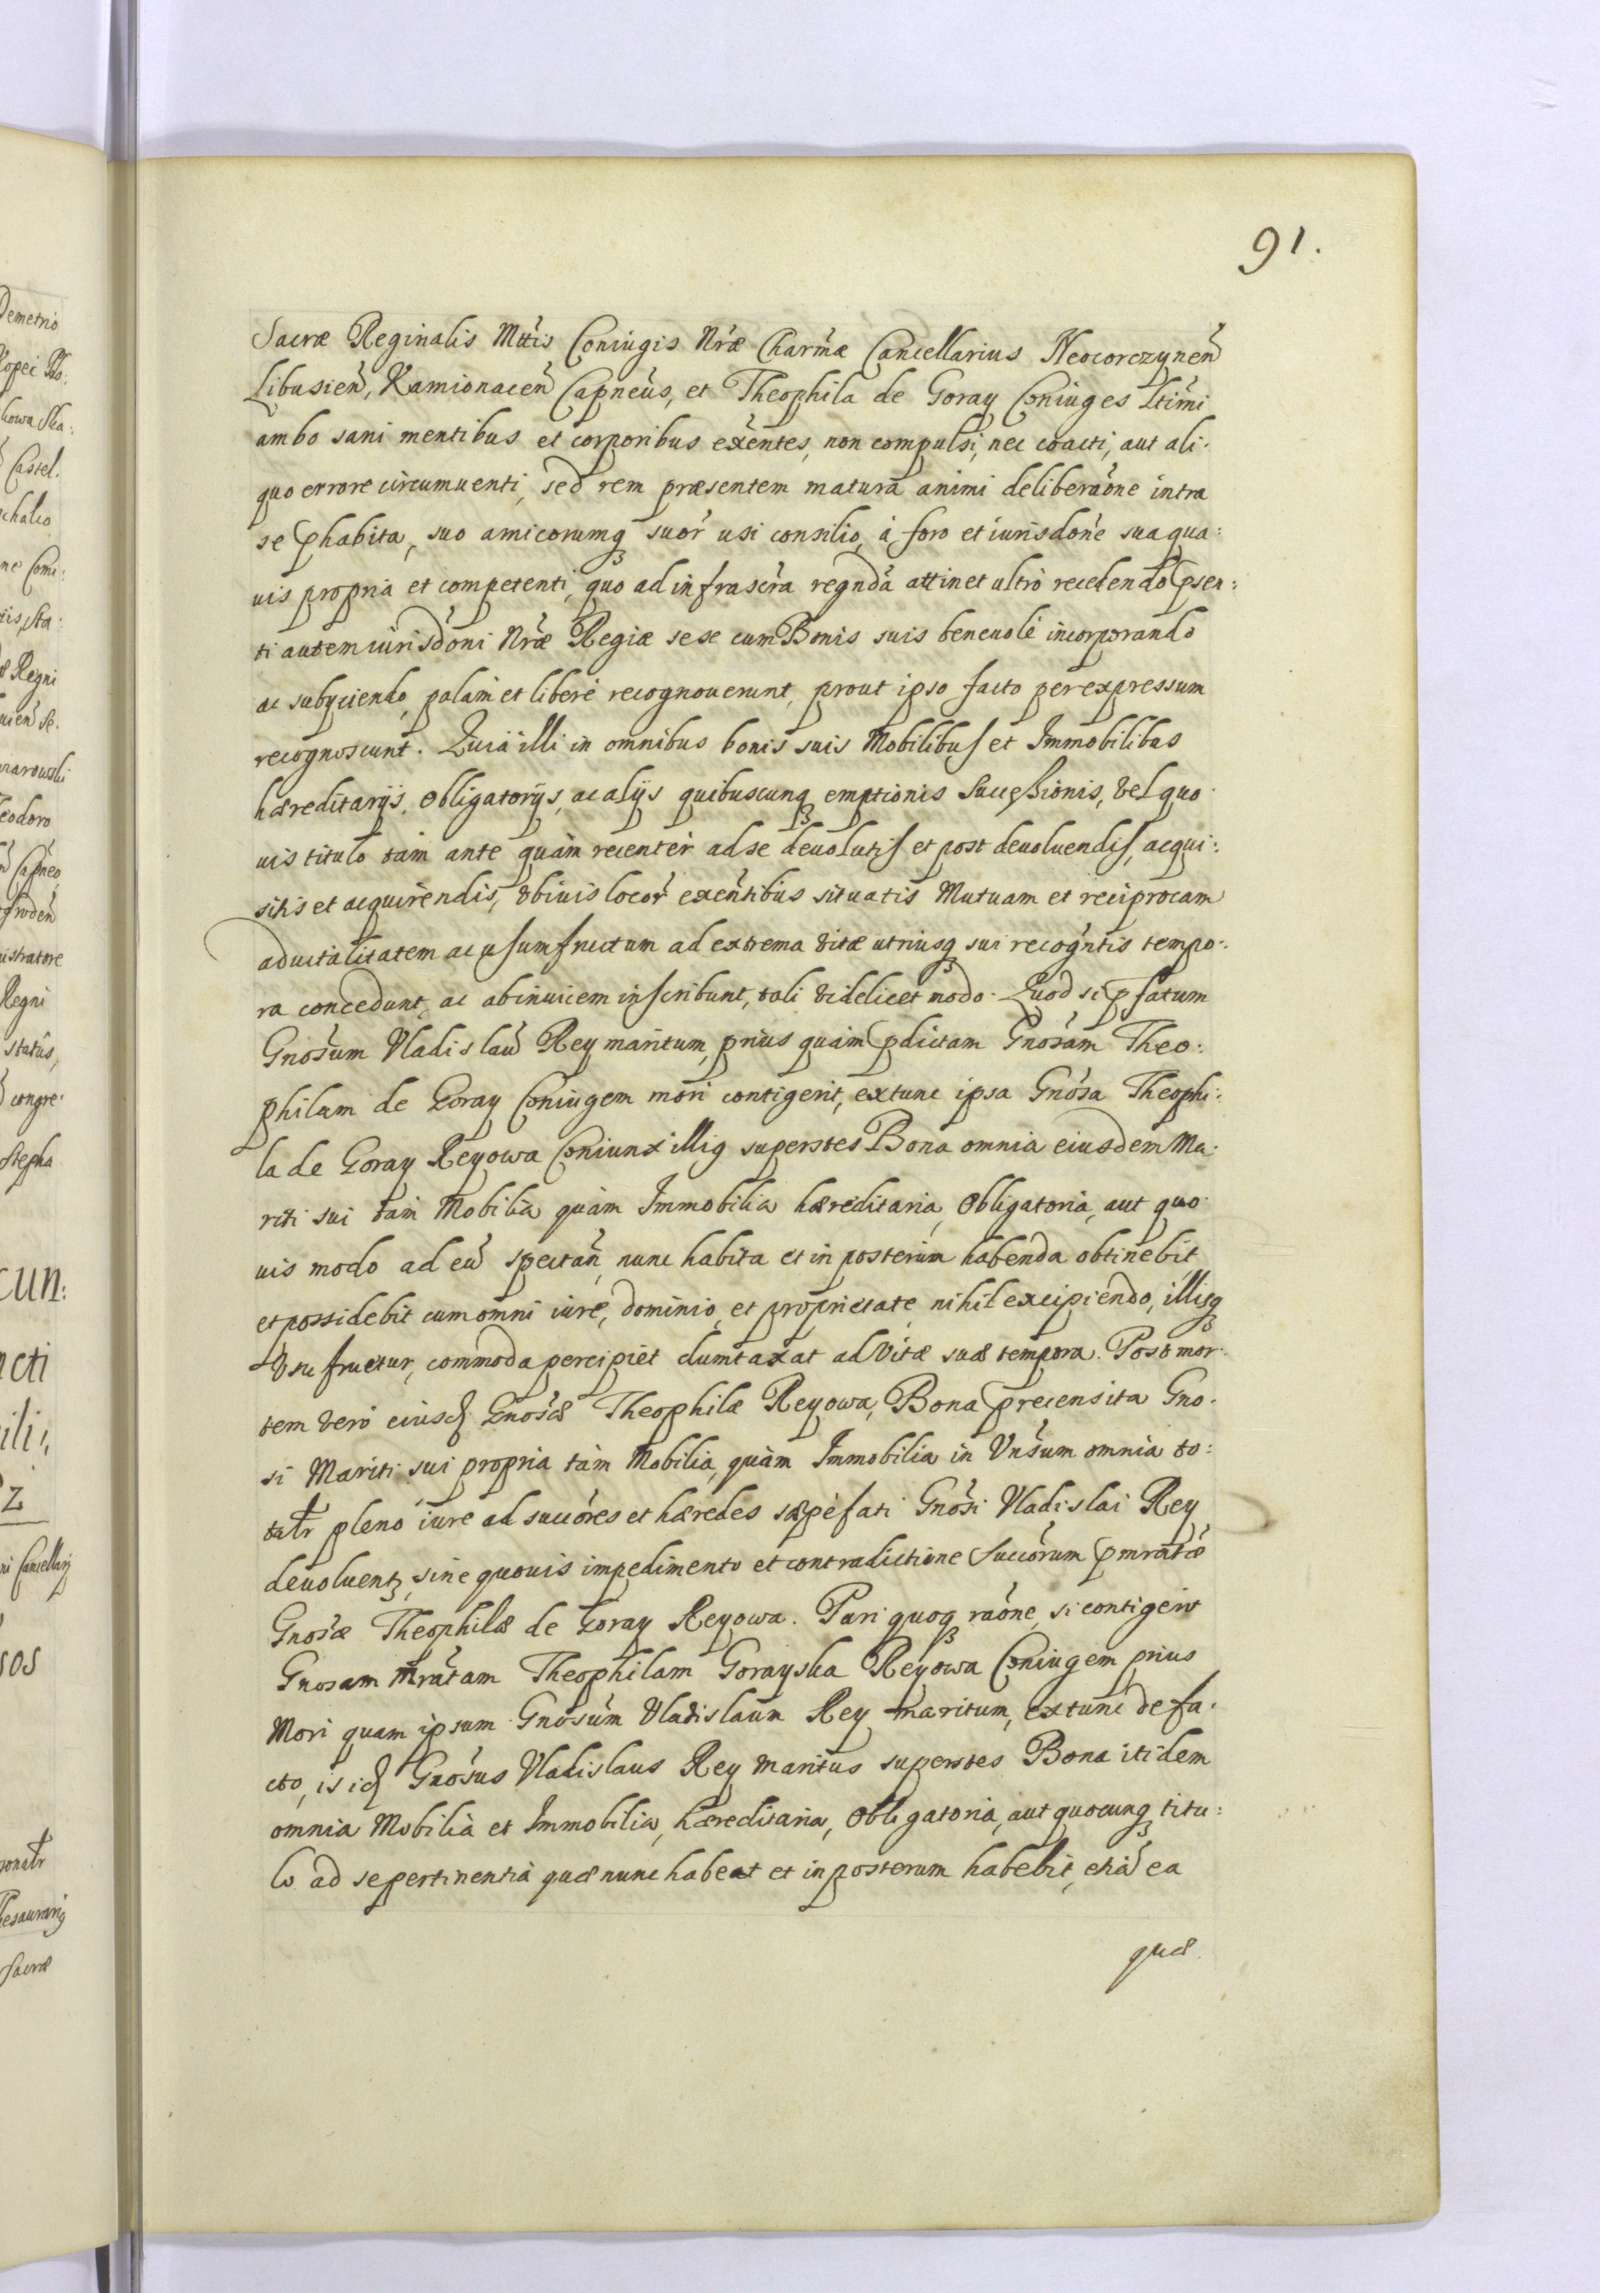 91.
Sacræ Reginalis Mttis Coniugis Nræ Charmæ Cancellarius Neocorczynen
Libusien, Kamionacen Capneus, et Theophila de Goray Coniuges Ltimi
ambo sani mentibus et corporibus exentes, non compulsi, nec coacti, aut ali:
quo errore circumuenti, sed rem præsentem matura animi deliberaone intra
se phabita, suo amicorumq suor usi consilio, à foro et iurisdone sua qua:
uis propria et competenti, quo ad infrascra regnda attinet ultrò recedendo psen:
ti autem iurisdoni Nræ Regiæ sese cum Bonis suis beneuolè incorporando
ac subyciendo, palàm et liberè recognouerunt, prout ipso facto per expressum
recognoscunt. Quia illi in omnibus bonis suis Mobilibus et Immobilibus
hæreditarijs, Obligatorijs, ac alijs quibuscunq emptionis Successionis, vel quo
uis titulo tàm ante quàm recenter ad se deuolutis et post deuoluendis, acqui:
sitis et acquirendis, vbiuis locor exentibus situatis Mutuam et reciprocam
aduitalitatem ac usumfructum ad extrema vitæ utriusq sui recogntis tempo:
ra concedunt, ac abinuicem inscribunt, tali videlicet modo. Quod si pfatum
Gnosum Vladislau Rey maritum, prius quàm pdictam Gnosam Theo:
philam de Goray Coniugem mori contigerit, extunc ipsa Gnosa Theophi:
la de Goray Reyowa Coniunx illig superstes Bona omnia eiusdem Ma:
riti sui tàm Mobilia quàm Immobilia hæreditaria, Obligatoria, aut quo
uis modo ad eu spectan, nunc habita et in posterum habenda obtinebit
et possidebit cum omni iure, dominio, et proprietate nihil excipiendo, illisq
Vsufruetur, commoda percipiet dumtaxat ad Vitæ suæ tempora. Post mor:
tem vero eiusd Gnosæ Theophilæ Reyowa, Bona precensita Gno:
si Mariti sui propria tàm Mobilia, quàm Immobilia in Vnsum omnia to:
talr pleno iure ad succores et hæredes sæpefati Gnosi Vladislai Rey
deuoluent, sine quouis impedimento et contradictione Succorum pmratæ
Gnosæ Theophilæ de Goray Reyowa. Pari quoq raone, si contigerit
Gnosam mratam Theophilam Gorayska Reyowa Coniugem prius
Mori quam ipsum Gnosum Vladislaum Rey maritum, extunc de fa:
cto, is id Gnosus Vladislaus Rey maritus superstes Bona itidem
omnia Mobilia et Immobilia, hæreditaria, Obligatoria, aut quocunq titu:
lo ad se pertinentia quæ nunc habeat et in posterum habebit, etia ea
quæ